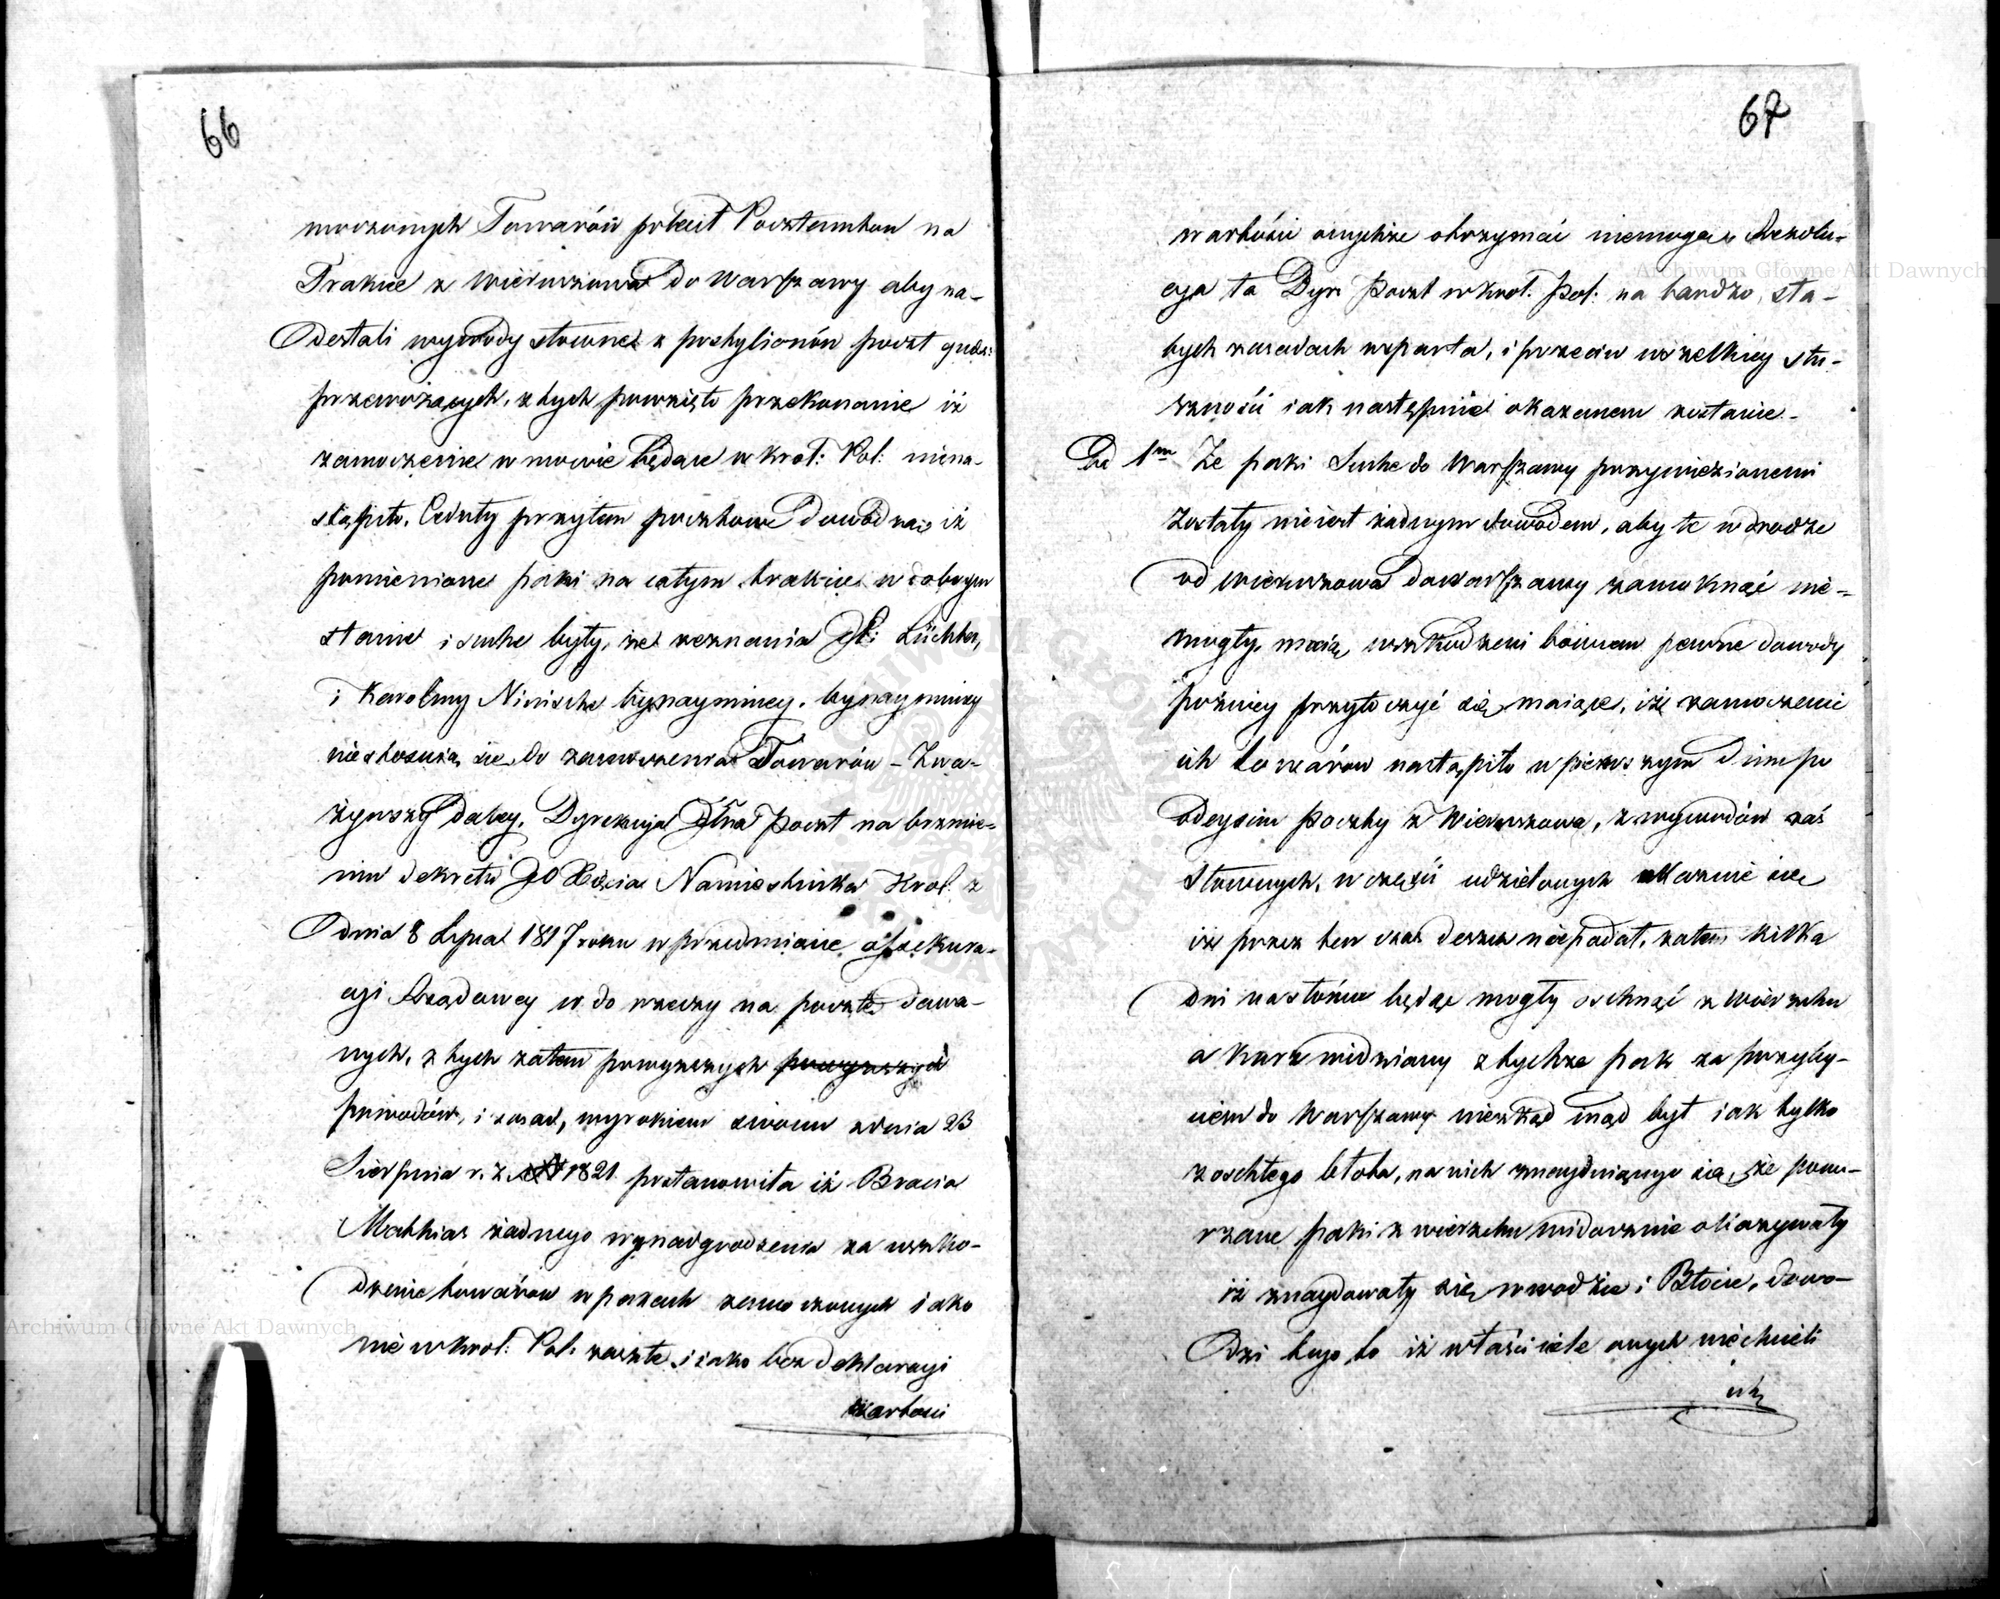 66
moczonych Towarów polecił Pocztamtom na
Trakcie z Wieruszowa do Warszawy aby na-
desłali wywody słowne z postylionów poczt
przewożących, z tych powzięto przekonanie iż
zamoczenie w mowie będące w Krol: Pol: niena-
stąpiło. Ceduły przytem pocztowe dowodzą iż
pomienione paki na całym trakcie w dobrym
stanie i suche były, że zeznania
i Karoliny Nitische bynaymniey, bynaymniey
niestosuią się do zamoczenia Towarów – Zwa-
żywszy daley, Dyrekcya Głna Poczt na brzmie-
niu dekretu JO Xięcia Namiestnika Krol: z
dnia 8 Lipca 1817 roku w przedmiocie assekura-
cyi Rządowey w do rzeczy na pocztę dawa-
nych, z tych zatem powyższych powyższych
powodów, i zasad, wyrokiem swoim z dnia 23
Sierpnia r. z. 1821 postanowiła iż Bracia
Mathias żadnego wynadgrodzenia za uszko-
dzenie towarów w pakach zamoczonych iako
nie w Krol: Pol: zaszłe, i iako bez deklaracyi
wartości
67
wartości onychże otrzymać niemogą. Rezolu-
cya ta Dyr: Poczt w Krol: Pol: na bardzo sła-
bych zasadach wsparta, i przeciw wszelkiey słu-
szności iak następnie okazanem zostanie.
Ad 1m Że paki suche do Warszawy przywiezionemi
zostały nieiest żadnym dowodem, aby te w drodze
od Wieruszowa do Warszawy zamoknąć nie-
mogły, maią uszkodzeni bowiem pewne dowody
poźniey przytoczyć się maiące, iż zamoczenie
ich towarów nastąpiło w pierwszym dniu po
odeyściu poczty z Wieruszowa, z wywodów zaś
słownych, w części udzielonych okaznie się
iż przez ten czas deszcz niepadał, zatem kilka
dni na słońcu będąc mogły oschnąć z wierzchu
a kurz widziany z tychże pak za przyby-
ciem do Warszawy nieszkąd inąd był iak tylko
z oschłego błota, na nich znayduiącego się, że pomo-
czane paki z wierzchu widocznie okazywały
iż znaydowały się w wodzie i Błocie, dowo-
dzi tego to iż właściciele onych niechcieli
ich